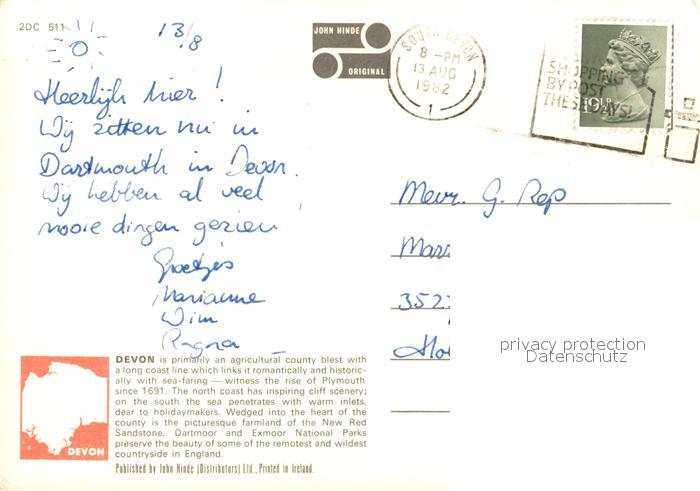 2DC 511
13/8
Heerlijk hier!
Wij zitten nu in
Dartmouth in Devon.
Wij hebben al veel
mooie dingen gezien
Groetjes
Marianne
Wim
Ragna
JOHN HINDE
ORIGINAL
SOUTH DEVON
8 - PM
13 AUG
1982
1
SHOPPING
BY POST
THESE DAYS!
Mevr. G. Rep
352
privacy protection
Datenschutz
DEVON is primarily an agricultural county blest with
a long coast line which links it romantically and historic-
ally with sea-faring — witness the rise of Plymouth
since 1691. The north coast has inspiring cliff scenery;
on the south the sea penetrates with warm inlets,
dear to holidaymakers. Wedged into the heart of the
county is the picturesque farmland of the New Red
Sandstone. Dartmoor and Exmoor National Parks
preserve the beauty of some of the remotest and wildest
countryside in England.
DEVON
Published by John Hinde (Distributors) Ltd., Printed in Ireland.